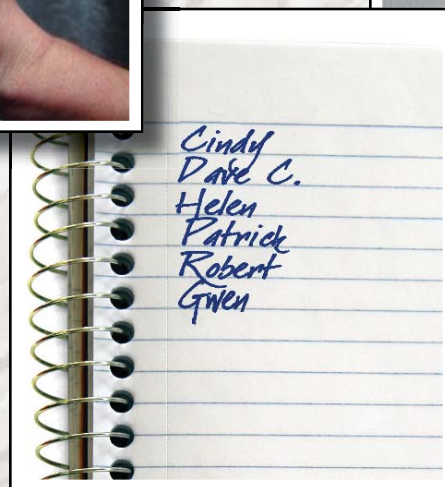 Cindy
Dave C.
Helen
Patrick
Robert
Gwen